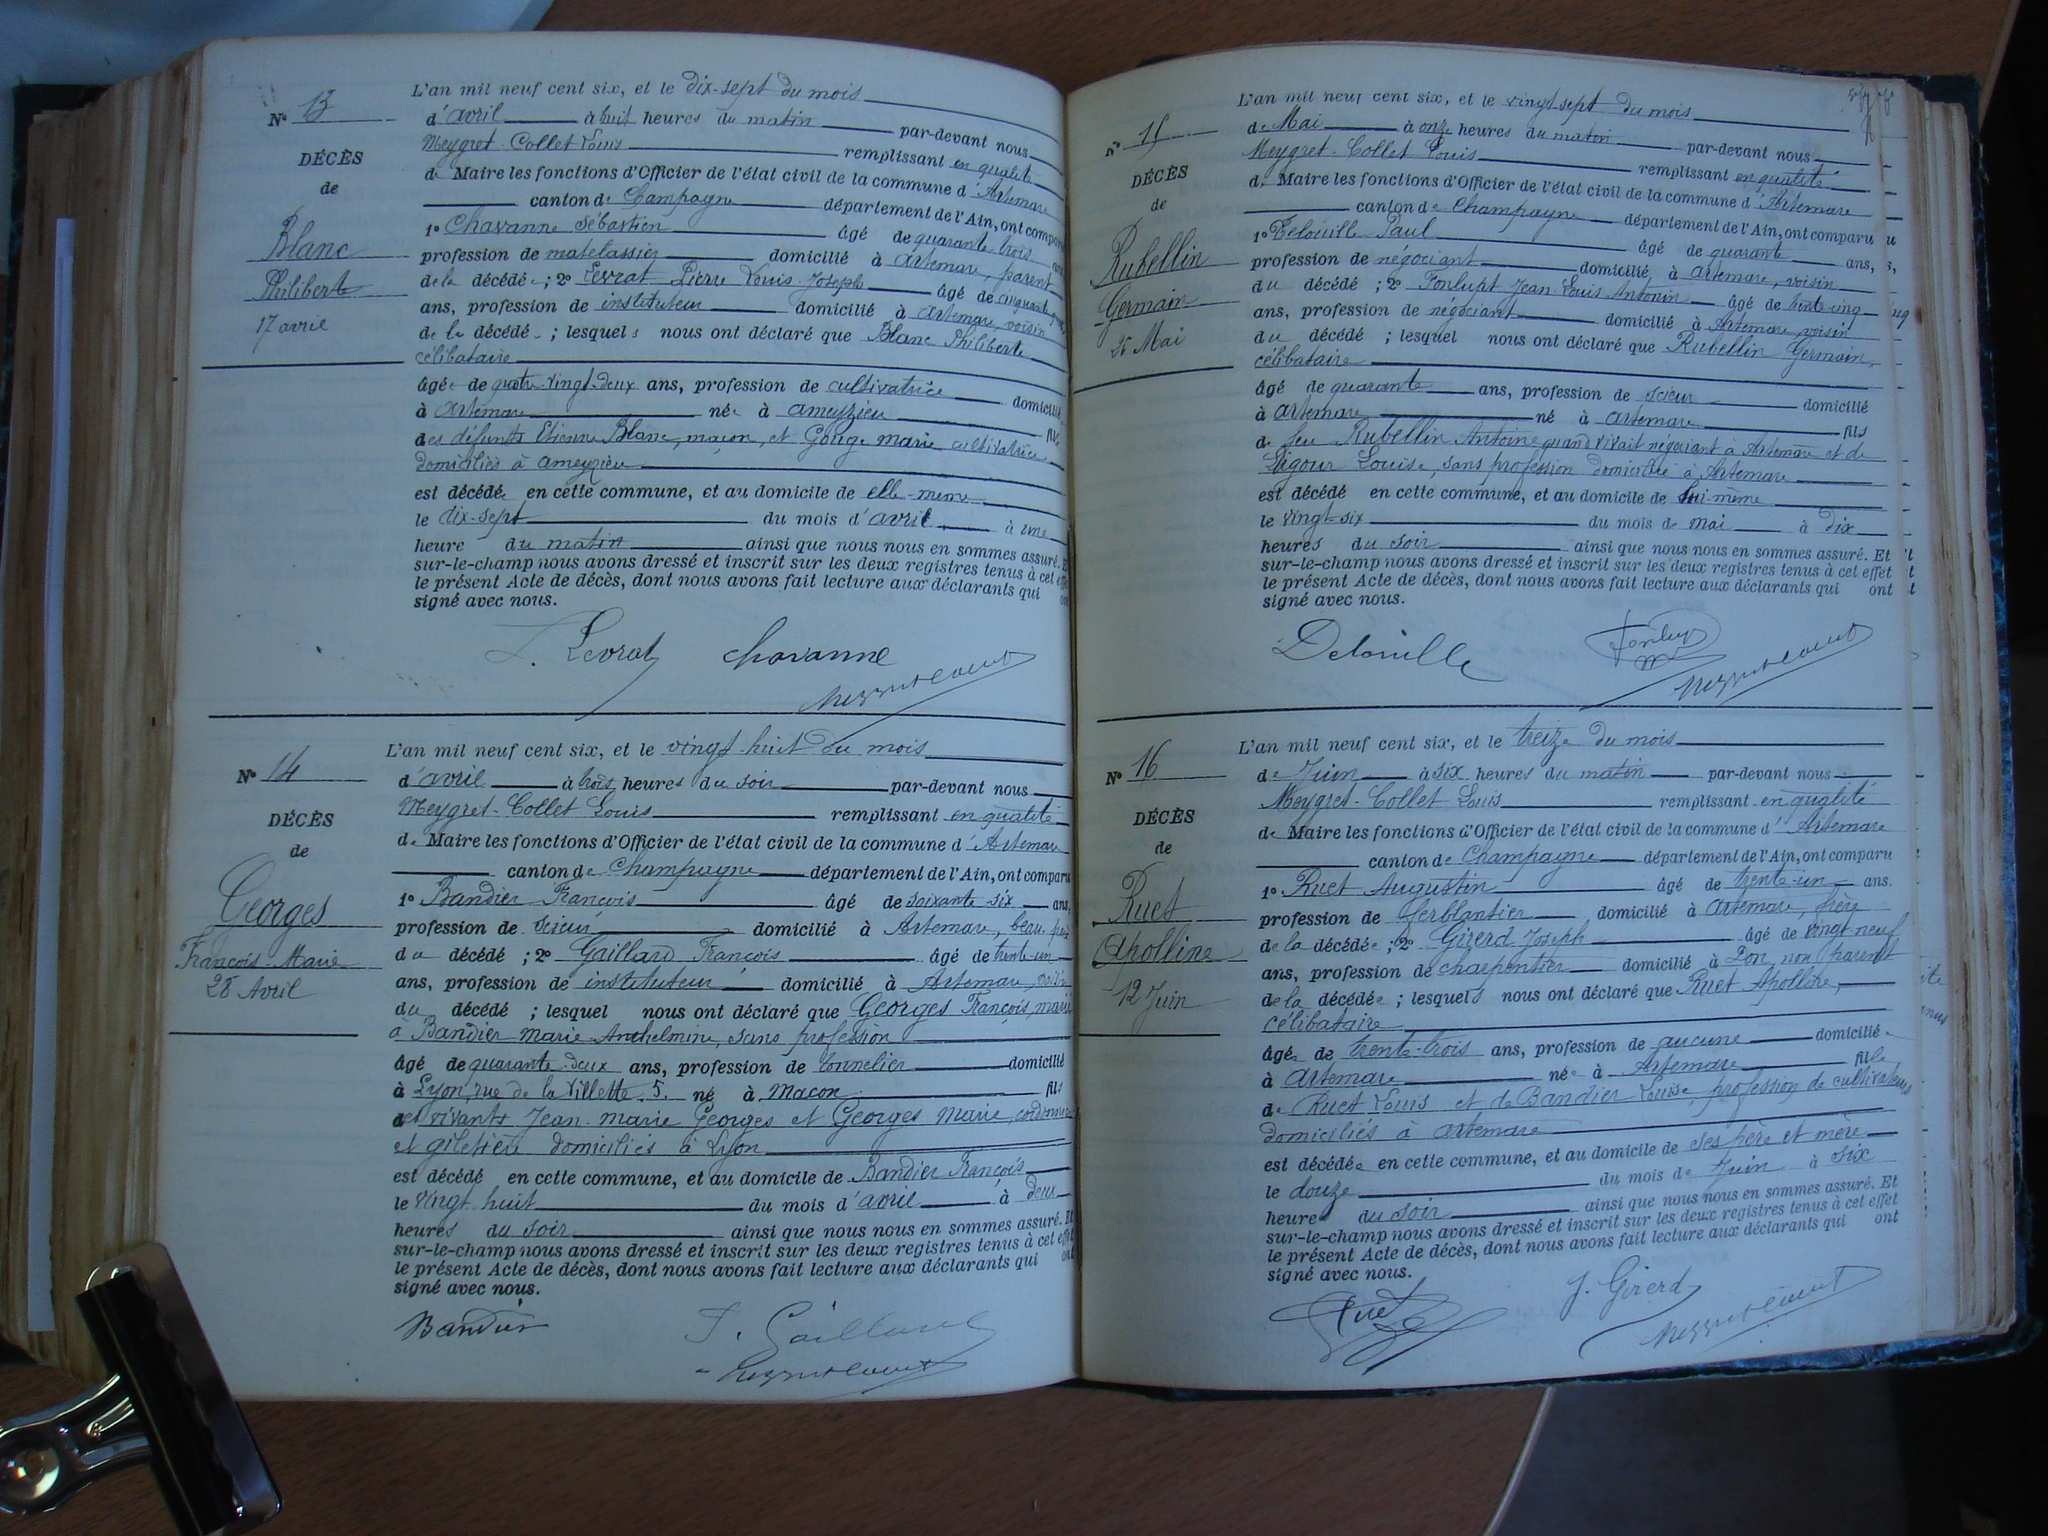 L'an mil neuf cent six, et le dix-sept du mois
N° 13
d'avril à huit heures du matin par-devant nous
Meygret-Collet Louis remplissant en qualité
DÉCÈS
de Maire les fonctions d'Officier de l'état civil de la commune d'Artemare
de
canton de Champagne département de l'Ain, ont comparu
1° Chavanne Sébastien âgé de quarante trois
Blanc
profession de matelassier domicilié à Artemare, parent
Philiberte
de la décédée; 2° Levrat Pierre Louis Joseph âgé de cinquante
17 avril
ans, profession de instituteur domicilié à Artemare, voisin
de la décédé; lesquels nous ont déclaré que Blanc Philiberte
célibataire
âgée de quatre-vingt-deux ans, profession de cultivatrice domicilié
à Artemare née à Ameyzieu fils
des défunts Etienne Blanc, maçon, et Gouge Marie cultivatrice
domiciliés à Ameyzieu
est décédée en cette commune, et au domicile de elle-même
le dix-sept du mois d'avril à une
heure du matin ainsi que nous nous en sommes assuré. Et
sur-le-champ nous avons dressé et inscrit sur les deux registres tenus à cet effet
le présent Acte de décès, dont nous avons fait lecture aux déclarants qui ont
signé avec nous.
L. Levrat Chavanne
L'an mil neuf cent six, et le vingt-huit du mois
N° 14
d'avril à trois heures du soir par-devant nous
Meygret-Collet Louis remplissant en qualité
DÉCÈS
de Maire les fonctions d'Officier de l'état civil de la commune d'Artemare
de
canton de Champagne département de l'Ain, ont comparu
1° Bandier François âgé de soixante six ans,
Georges
profession de scieur domicilié à Artemare, beau père
François-Marie
du décédé; 2° Gaillard François âgé de trente-un
28 Avril
ans, profession de instituteur domicilié à Artemare, voisin
du décédé; lesquel nous ont déclaré que Georges François, marié
à Bandier Marie-Anthelmine, sans profession
âgé de quarante-deux ans, profession de tonnelier domicilié
à Lyon, rue de la Villette, 5, né à Macon fils
des vivants Jean Marie Georges et Georges Marie, cordonnier
et giletière domiciliés à Lyon
est décédé en cette commune, et au domicile de Bandier François
le vingt huit du mois d'avril à deux
heures du soir ainsi que nous nous en sommes assuré. Et
sur-le-champ nous avons dressé et inscrit sur les deux registres tenus à cet effet
le présent Acte de décès, dont nous avons fait lecture aux déclarants qui ont
signé avec nous.
Bandier F. Gaillard
L'an mil neuf cent six, et le vingt sept du mois
N° 15
de Mai à onze heures du matin par-devant nous
Meygret-Collet Louis remplissant en qualité
DÉCÈS
de Maire les fonctions d'Officier de l'état civil de la commune d'Artemare
de
canton de Champagne département de l'Ain, ont comparu
1° Delouille Paul âgé de quarante ans,
Rubellin
profession de négociant domicilié à Artemare, voisin
Germain
du décédé; 2° Fonlupt Jean-Louis Antonin âgé de trente cinq
26 Mai
ans, profession de négociant domicilié à Artemare, voisin
du décédé; lesquel nous ont déclaré que Rubellin Germain,
célibataire
âgé de quarante ans, profession de scieur domicilié
à Artemare né à Artemare fils
de feu Rubellin Antoine quand vivait négociant à Artemare et de
Ligour Louise, sans profession domiciliée à Artemare
est décédé en cette commune, et au domicile de lui-même
le vingt-six du mois de mai à dix
heures du soir ainsi que nous nous en sommes assuré. Et
sur-le-champ nous avons dressé et inscrit sur les deux registres tenus à cet effet
le présent Acte de décès, dont nous avons fait lecture aux déclarants qui ont
signé avec nous.
Delouille
L'an mil neuf cent six, et le treize du mois
N° 16
de Juin à six heures du matin par-devant nous
Meygret-Collet Louis remplissant en qualité
DÉCÈS
de Maire les fonctions d'Officier de l'état civil de la commune d'Artemare
de
canton de Champagne département de l'Ain, ont comparu
1° Ruet Augustin âgé de trente-un ans.
Ruet
profession de ferblantier domicilié à Artemare, frère
Apolline
de la décédée; 2° Girerd Joseph âgé de vingt-neuf
ans, profession de charpentier domicilié à Don, non parent
12 Juin
de la décédée; lesquels nous ont déclaré que Ruet Apolline,
célibataire
âgée de trente-trois ans, profession de aucune domiciliée
à Artemare née à Artemare fille
de Ruet Louis et de Bandier Louise, profession de cultivateurs
domiciliés à Artemare
est décédée en cette commune, et au domicile de ses père et mère
le douze du mois de Juin à six
heures du soir ainsi que nous nous en sommes assuré. Et
sur-le-champ nous avons dressé et inscrit sur les deux registres tenus à cet effet
le présent Acte de décès, dont nous avons fait lecture aux déclarants qui ont
signé avec nous.
Ruet J. Girerd